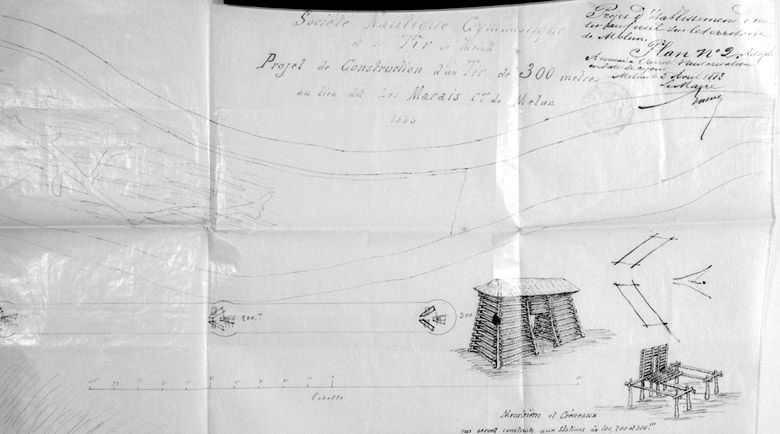 Société Nautique Gymnastique
et Tir de Melun
Projet de Construction d'un Tir de 300 mètres
au lieu dit Les Marais Cne de Melun
1883
Projet d'établissement d'un
tir au fusil sur le territoire
de Melun.
Plan n° 2. Adopté
Annexé à l'arrêté d'autorisation
en date de ce jour
Melun, le 2 Avril 1883
Le Maire
200.m
300
Echelle
Meurtrières et Créneaux
qui seront construits aux Stations de 100, 200 et 300.m